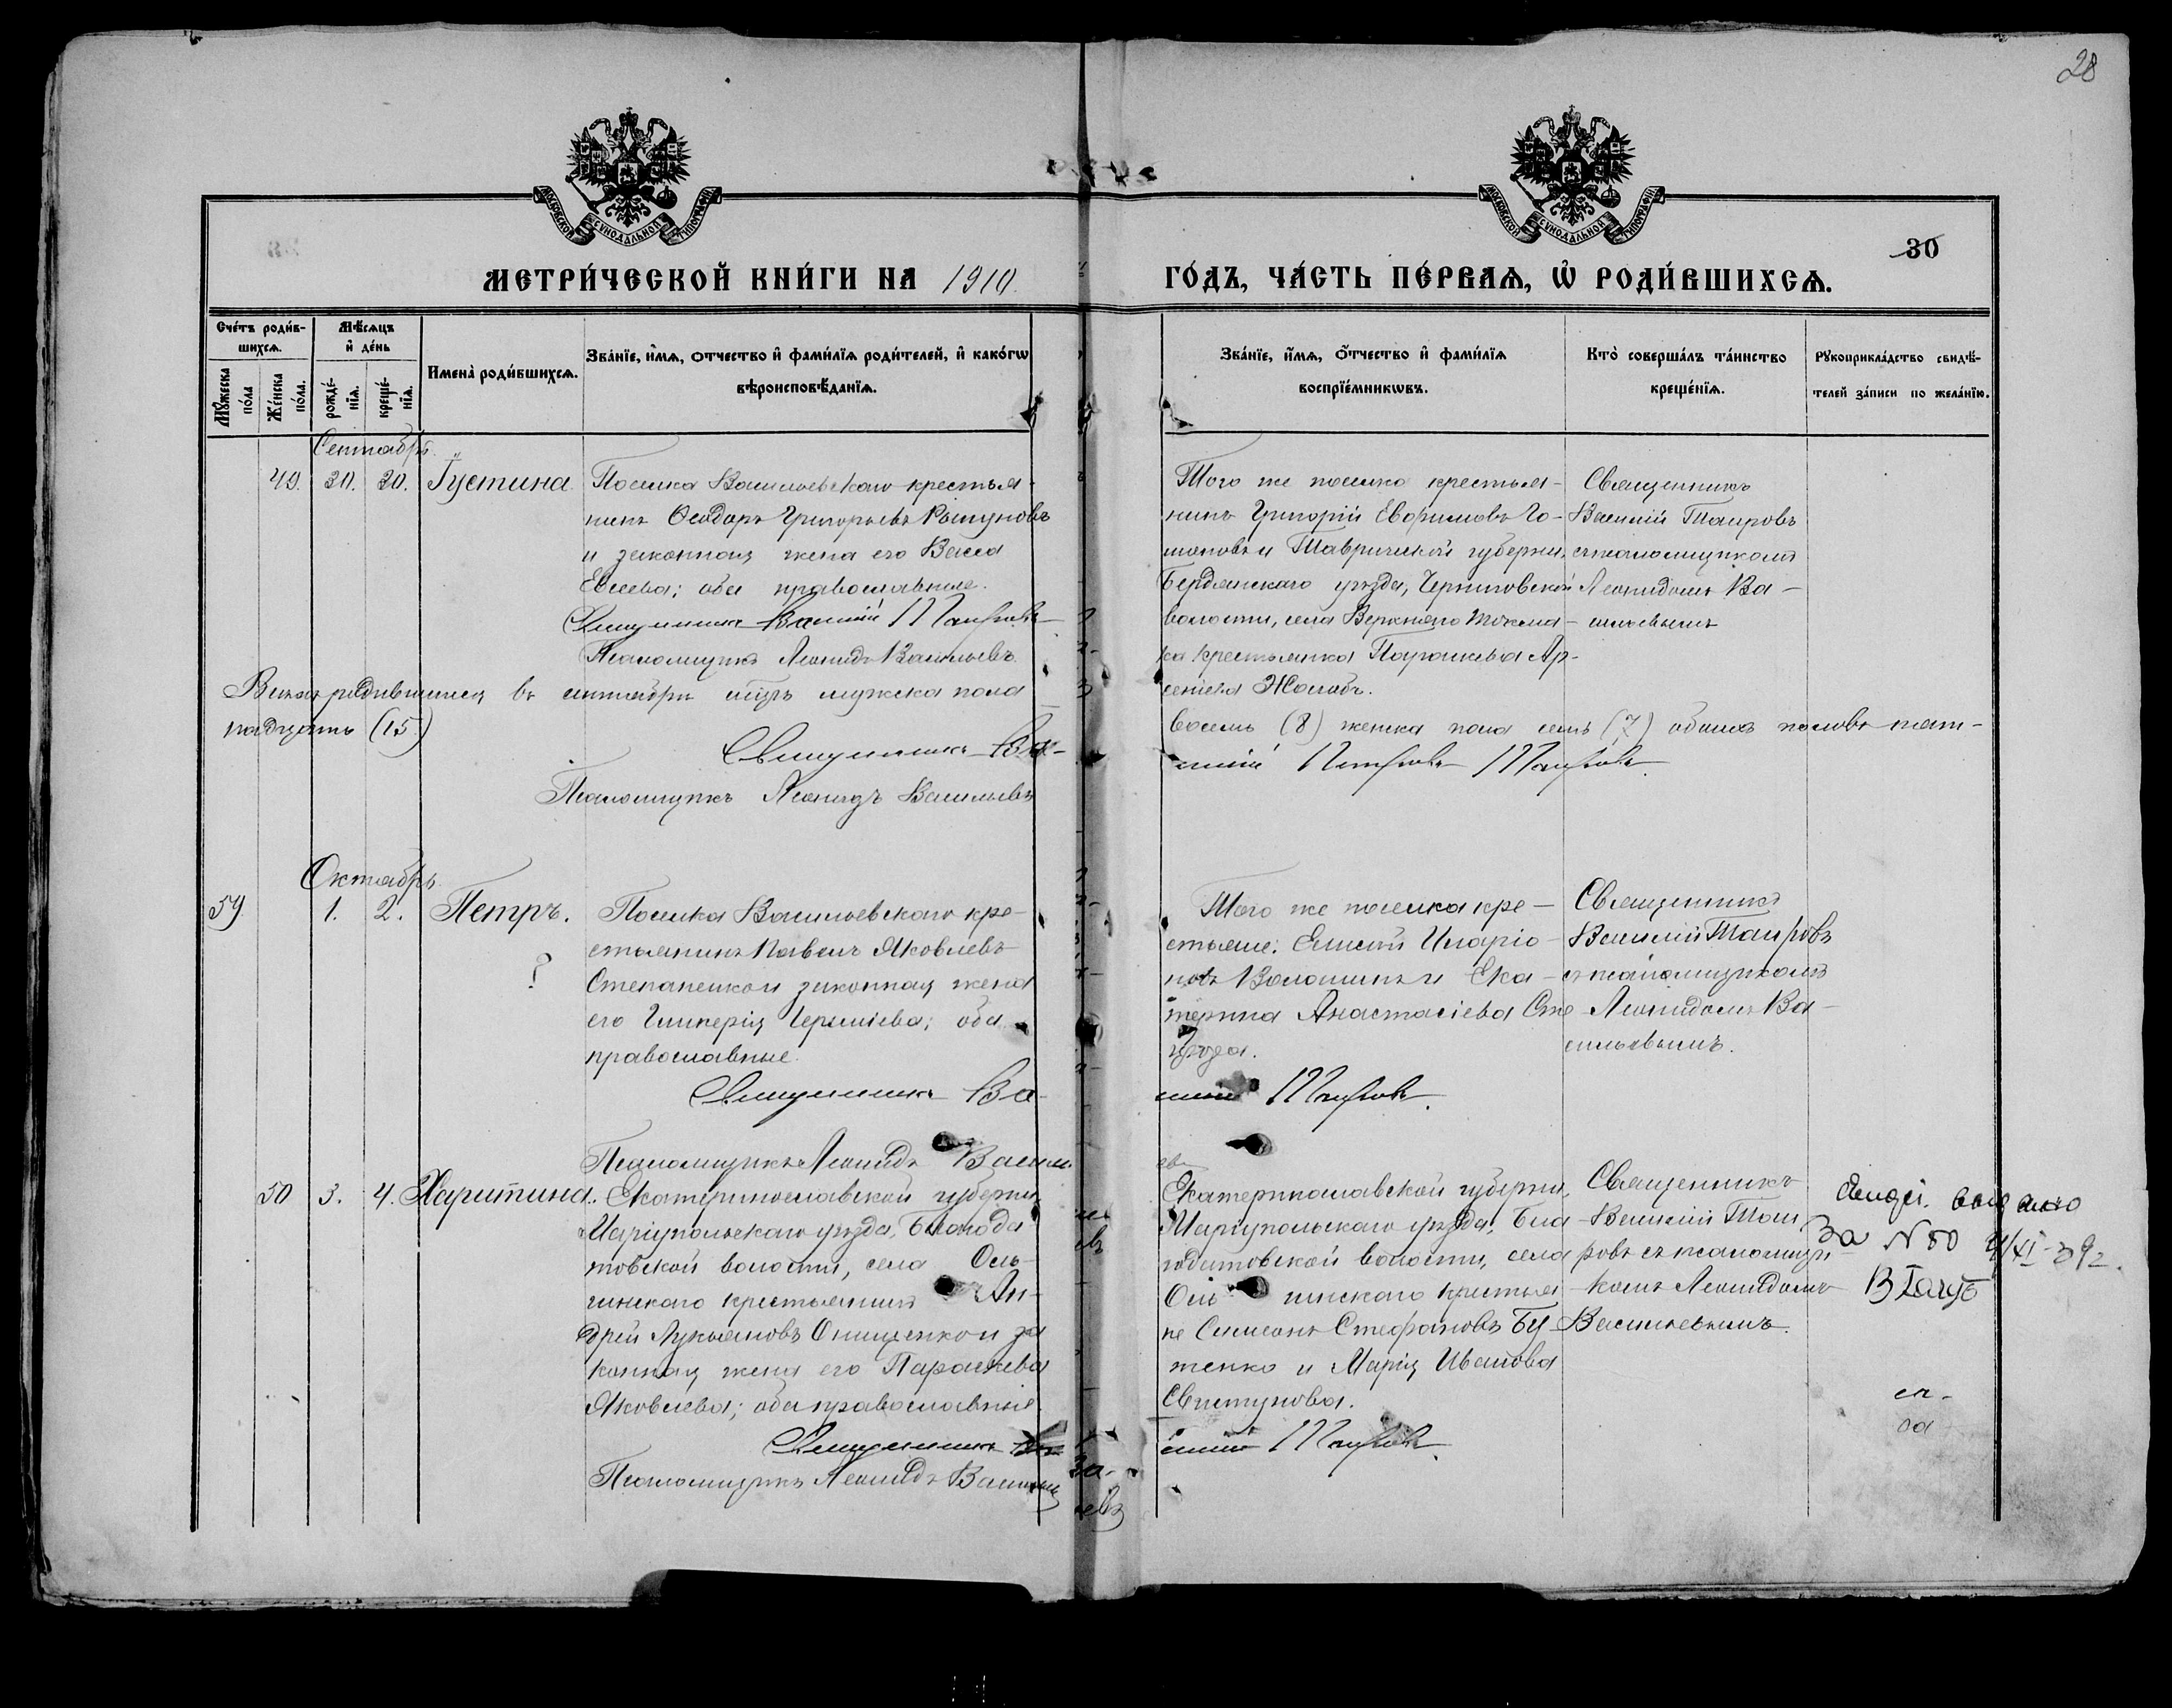 28
30
МЕТРИ́ЧЕСКОЙ КНИ́ГИ НА 1910.
ГО́ДЪ, ЧА́СТЬ ПЕ́РВАЯ, Ѿ РОДИ́ВШИХСЯ.
Сче́тъ роди́в-
шихся.
Мѣ́сяцъ
и де́нь
Мꙋ́жеска
по́ла
Же́нска
по́ла.
рожде́-
нїя.
креще́-
нїя.
Имена̀ роди́вшихся.
Зва́нїе, и́мя, отчество и фами́лїя роди́телей, и како́гѡ
вѣроисповѣ́данїя.
Зва́нїе, и́мя, о́тчество и фами́лїя
воспрїе́мникѡвъ.
Кто̀ соверша́лъ та́инство
креще́нїя.
Рꙋкоприкла́дство свидѣ́-
телей за́писи по жела́нїю.
Сентябрь.
49. 20. 20. Іустина.
Поселка Васильевскаго крестья-
нинъ Ѳеодоръ Григорьевъ
и законная жена его Васса
Евсеева; оба православные.
Священникъ Василій Таировъ
Псаломщикъ Леонидъ Васильевъ.
Того же поселка крестья-
нинъ Григорій Евфимовъ Го-
и Таврической губерніи,
Бердянскаго уѣзда, Черниговской
волости, села Верхняго Токма-
ка крестьянка Параскева Ар-
сеніева
Священникъ
Василій Таировъ
съ псаломщикомъ
Леонидомъ Ва-
сильевымъ
Всѣхъ родившихся въ сентябрѣ мѣсяцѣ мужеска пола
восемь (8) женска пола семь (7) обоихъ половъ пят-
надцать (15)
Священникъ Ва-
силій Петровъ Таировъ.
Псаломщикъ Леонидъ Васильевъ
Октябрь.
59. 1. 2. Петръ.
?
Поселка Васильевскаго кре-
стьянинъ Павелъ Яковлевъ
Степаненко и законная жена
его Гликерія; оба
православные.
Священникъ Ва-
Псаломщикъ Леонидъ Василь
евъ
Того же поселка кре-
стьяне: Иларіо-
новъ Волошинъ и Ека-
терина Анастасіева
силій Таировъ.
Священникъ
Василій Таировъ
съ псаломщикомъ
Леонидомъ Ва-
сильевымъ.
50 3. 4. Харитина.
Екатеринославской губерніи
Маріупольскаго уѣзда, Благода
товской волости, села Оль-
гинскаго крестьянинъ Ан-
дрей Лукьяновъ Онищенко и за
конная жена его Параскева
Яковлева; оба православные.
Священникъ Ва
Псаломщикъ Леонидъ Василь
евъ
Екатеринославской губерніи,
Маріупольскаго уѣзда, Бла-
годатовской волости, села
Оль гинскаго крестья-
не Симеонъ Стефановъ Бу-
тенко и Марія Иванова
Свистунова.
силій Таировъ.
Священникъ
Василій Таи
ровъ съ псаломщи-
комъ Леонидомъ
Васильевымъ.
выдано
За N 80 4/XI-39г.